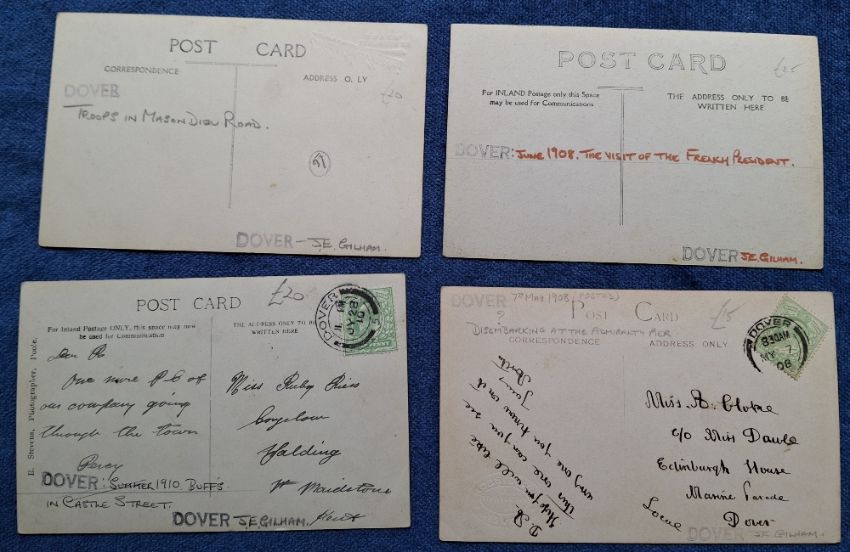 POST CARD
CORRESPONDENCE
ADDRESS O LY
£20
DOVER
TROOPS IN MAISON DIEU ROAD.
DOVER - J.E. GILHAM.
POST CARD
£25
For INLAND Postage only this Space
may be used for Communications
THE ADDRESS ONLY TO BE
WRITTEN HERE
DOVER: JUNE 1908. THE VISIT OF THE FRENCH PRESIDENT.
DOVER J.E. GILHAM.
POST CARD
£20
For Inland Postage ONLY, this space may now
be used for Communication
THE ADDRESS ONLY TO BE
WRITTEN HERE
DOVER
28
10
PENNY
One more P.C of
our company going
through the town
Percy
Miss Ruby
Yalding
Nr Maidstone
Kent
Stevens, Photographer, Poole.
DOVER: SUMMER 1910. BUFFS
IN CASTLE STREET.
DOVER J.E. GILHAM.
DOVER 7TH MAY 1908 (POSTED)
?
£15
POST CARD
DISEMBARKING AT THE ADMIRALTY PIER
CORRESPONDENCE
ADDRESS ONLY
DOVER
8 30AM
MY 7
08
D. A.
Hope you will like
this one can you see
any one you know on it
Miss A. Cloke
c/o Miss Dawle
Edinburgh House
Marine Parade
Dover
Local
DOVER J.E. GILHAM.